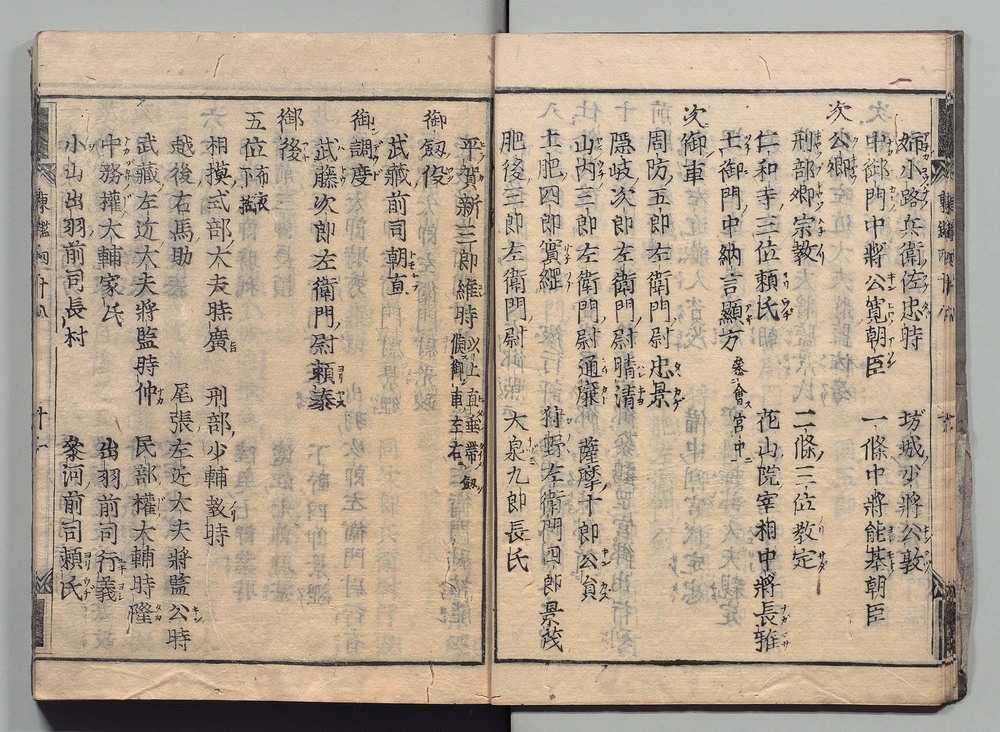 姉小路兵衛佐忠時 坊城少將公敦
中御門中將公寛朝臣 一條中將能基朝臣
次公卿
刑部卿宗教 二條三位教定
仁和寺三位頼氏 花山院宰相中將長雅
土御門中納言顯方 參會宮中
次御車
周防五郎左衛門尉忠景
隠岐次郎左衛門尉時清 薩摩十郎公員
山内三郎左衛門尉通廉 狩野左衛門四郎景茂
土肥四郎實經 大泉九郎長氏
肥後三郎左衛門尉
平賀新三郎維時 以上直垂帶劔候御車左右
御劔役
武藏前司朝直
御調度
武藤次郎左衛門尉頼泰
御後
五位 布衣下括
相摸式部大夫時廣 刑部少輔教時
越後右馬助 尾張左近大夫將監公時
武藏左近大夫將監時仲 民部權大輔時隆
中務權大輔家氏 出羽前司行義
小山出羽前司長村 參河前司頼氏
東鑑四十八 十一